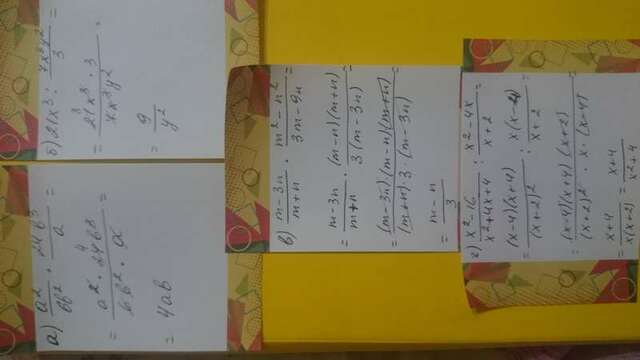 а) a²/6b² · 24b³/a =
= a² · 24b³ / 6b² · a =
= 4ab
б) 21x³ : 7x³y²/3 =
= 21x³ · 3 / 7x³y² =
= 9/y²
в) m-3n/m+n · m²-n²/3m-9n =
= m-3n/m+n · (m-n)(m+n)/3(m-3n) =
= (m-3n)(m-n)(m+n)/(m+n)·3·(m-3n) =
= m-n/3
г) x²-16/x²+4x+4 : x²-4x/x+2 =
= (x-4)(x+4)/(x+2)² : x(x-4)/x+2 =
= (x-4)(x+4)(x+2)/(x+2)²·x·(x-4) =
= x+4/x(x+2) = x+4/x²+4